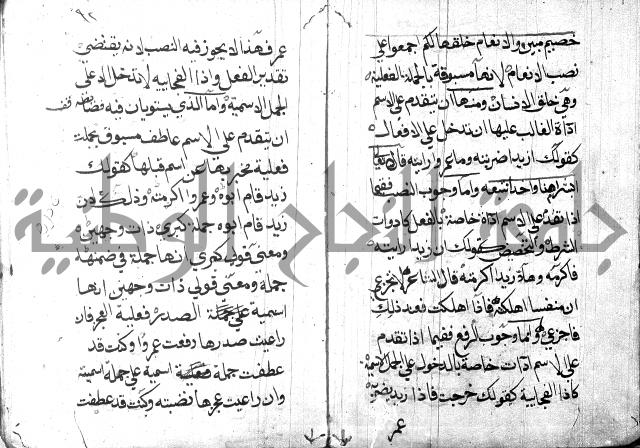 خصيم مبين والانعام خلقها لكم اجمعوا على
نصب الانعام لانها مسبوقة بالجملة الفعلية
وهي خلق الانسان ومنها ان يتقدم على الاسم
اداة الغالب عليها ان تدخل على الافعال
كقولك ازيدا ضربته وما عمروا رايته قال تعالى
ابشرا منا واحدا نتبعه واما وجوب النصب ففيما
اذا تقدم على الاسم اداة خاصة بالفعل كادوات
الشرط والتحضيض كقولك ان زيدا رايته
فاكرمه وهلا زيدا اكرمته قال الشاعر لا تجزعي
ان منفسا اهلكته فاذا هلكت فعند ذلك
فاجزعي واما وجوب الرفع ففيما اذا تقدم
على الاسم ادات خاصة بالدخول على الجمل الاسمية
كاذا الفجايية كقولك خرجت فاذا زيد يضربه
عمر
٩٢
عمر فهذا لا يجوز فيه النصب لانه يقتضي
تقدير الفعل واذا الفجايية لا تدخل الا على
الجمل الاسمية واما الذي يستويان فيه فضابطه
ان يتقدم على الاسم عاطف مسبوق بجملة
فعلية مخبر بها عن اسم قبلها كقولك
زيد قام ابوه وعمروا اكرمته وذلك لان
زيد قام ابوه جملة كبرى ذات وجهين
ومعنى قولي كبرى انها جملة في ضمنها
جملة ومعنى قولي ذات وجهين انها
اسمية الصدر فعلية العجز فان
راعيت صدرها رفعت عمروا وكنت قد
عطفت جملة اسمية على جملة اسمية
وان راعيت عجزها نصبته وكنت قد عطفت
جامعة النجاح الوطنية